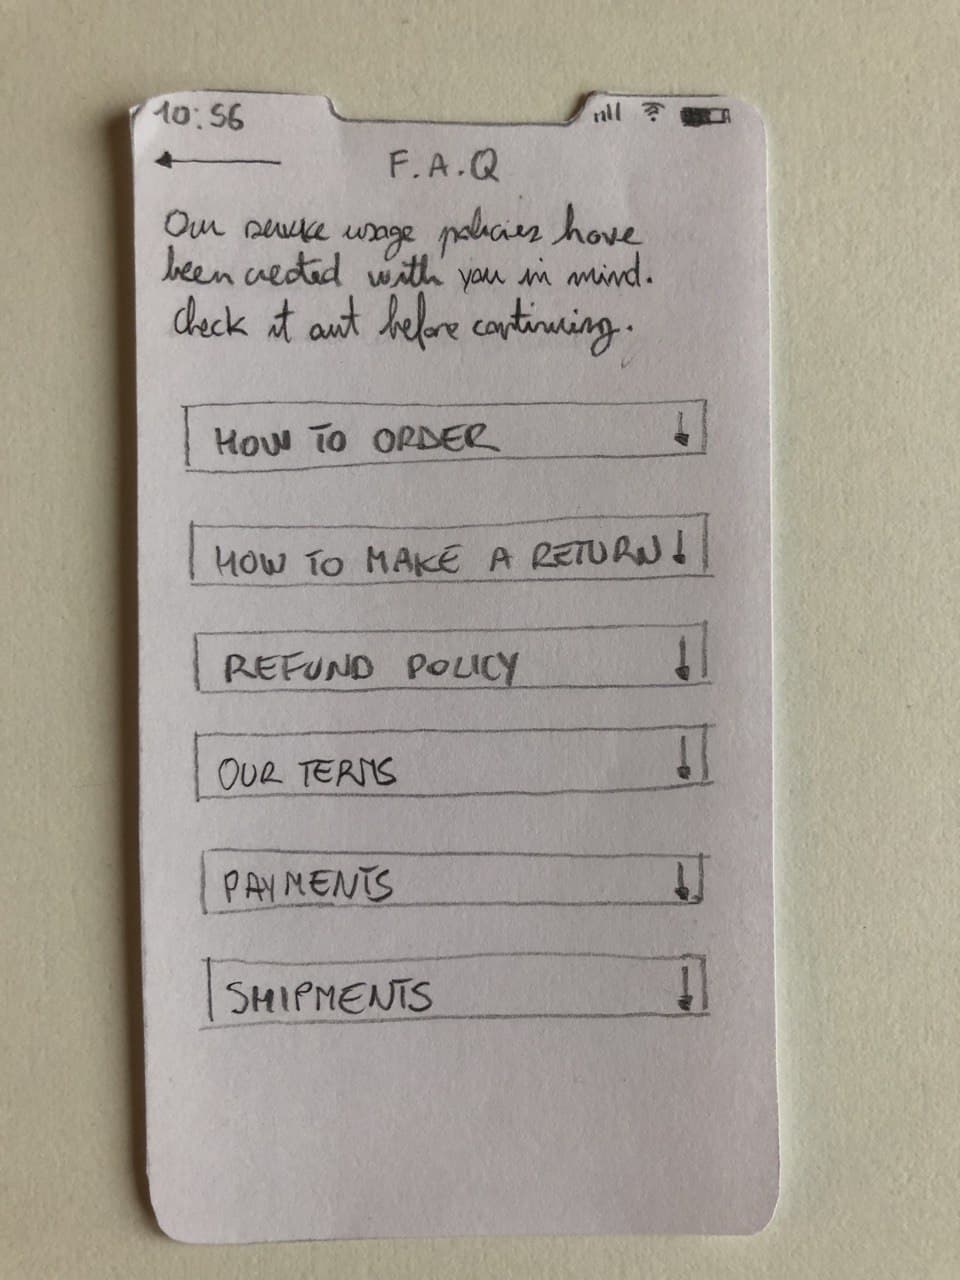 10:56
F.A.Q
Our service usage policies have
been created with you in mind.
Check it out before continuing.
HOW TO ORDER
HOW TO MAKE A RETURN
REFUND POLICY
OUR TERMS
PAYMENTS
SHIPMENTS